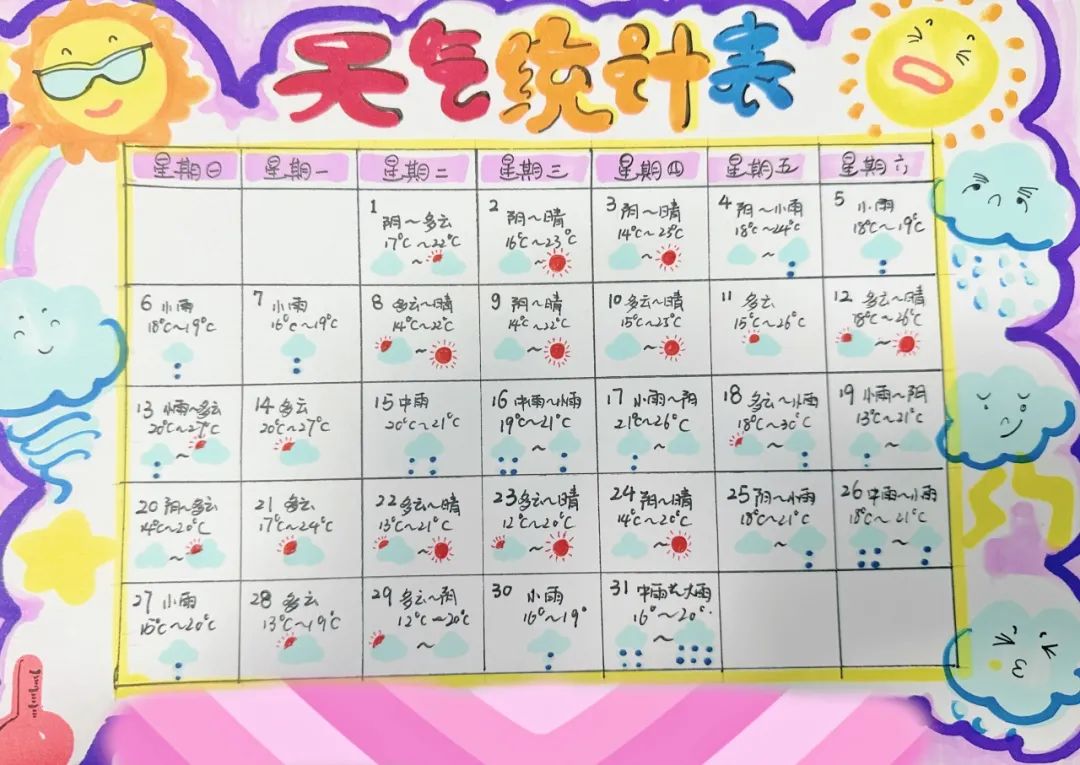 天气统计表
星期日 星期一 星期二 星期三 星期四 星期五 星期六
1 阴~多云
17℃~22℃
2 阴~晴
16℃~23℃
3 阴~晴
14℃~25℃
4 阴~小雨
18℃~24℃
5 小雨
18℃~19℃
6 小雨
18℃~19℃
7 小雨
16℃~19℃
8 多云~晴
14℃~22℃
9 阴~晴
14℃~22℃
10 多云~晴
15℃~25℃
11 多云
15℃~26℃
12 多云~晴
18℃~26℃
13 小雨~多云
20℃~27℃
14 多云
20℃~27℃
15 中雨
20℃~21℃
16 中雨~小雨
19℃~21℃
17 小雨~阴
21℃~26℃
18 多云~小雨
18℃~30℃
19 小雨~阴
13℃~21℃
20 阴~多云
14℃~20℃
21 多云
17℃~24℃
22 多云~晴
13℃~21℃
23 多云~晴
12℃~20℃
24 阴~晴
14℃~20℃
25 阴~小雨
18℃~21℃
26 中雨~小雨
18℃~21℃
27 小雨
16℃~20℃
28 多云
13℃~19℃
29 多云~阴
12℃~20℃
30 小雨
16℃~19°
31 中雨~大雨
16°~20°